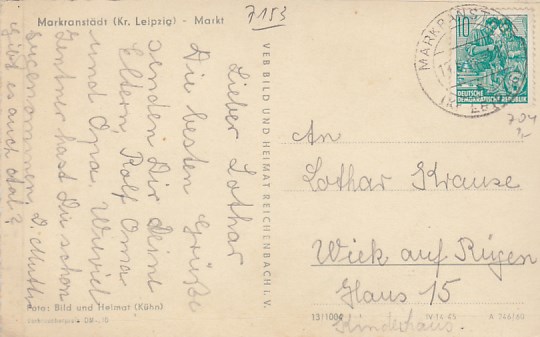 Markranstädt (Kr. Leipzig) - Markt
7153
Lieber Lothar
Die besten Grüße
senden Dir Deine
Eltern, Rolf Oma
und Opa. Wieviel
Zentner hast Du schon
zugenommen, D. Mutti
Gibt es auch Aal?
Foto: Bild und Heimat (Kühn)
VEB BILD UND HEIMAT REICHENBACH i. V.
MARKRANSTÄDT
10
DEUTSCHE
DEMOKRATISCHE REPUBLIK
704
An
Lothar Krause
Wiek auf Rügen
Haus 15
Kinderhaus.
IV-14-45
A 746/60